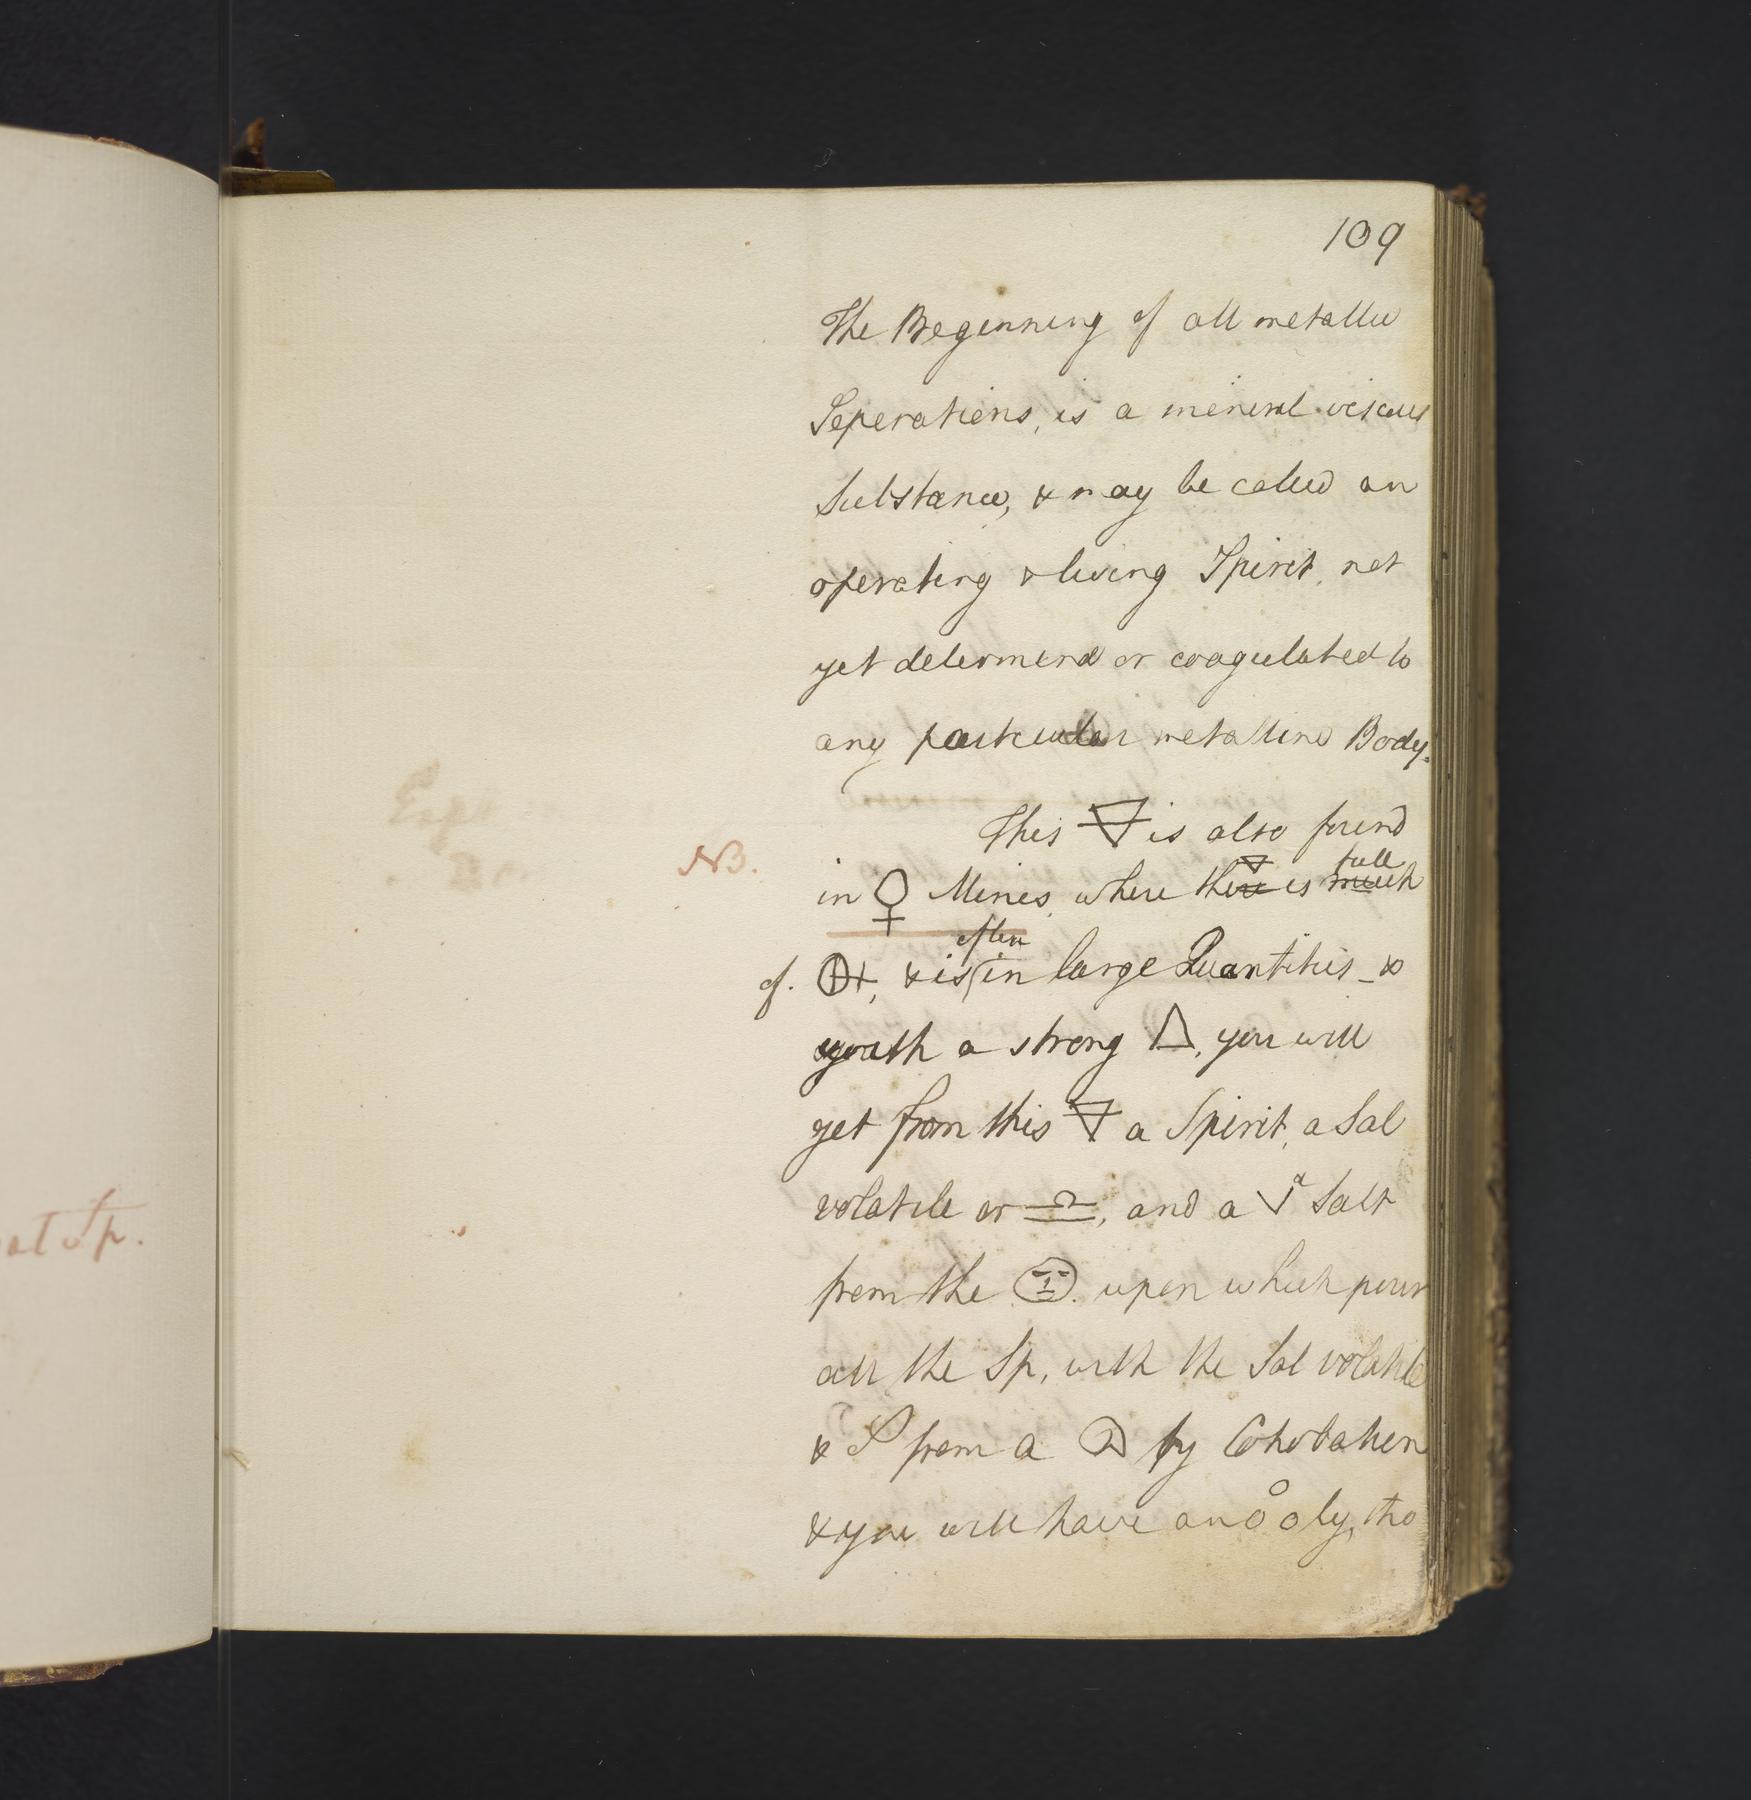 109
The Beginning of all metallic
Seperations, is a mineral viscous
Substance, & may be called an
operating & living Spirit, not
yet determind or coagulated to
any particular metalline Body.
This 🜃 is also found
NB.
in ♀ Mines, where there 🜃 is much full
often
of 🜨, & is in large Quantities _ &
with a strong 🜂, you will
get from this 🜃 a Spirit, a Sal
volatile or ♎, and a Salt
from the upon which pour
all the Sp, with the Sal volatile
& from a by Cohobation
& you will have an oly, tho
at Sp.